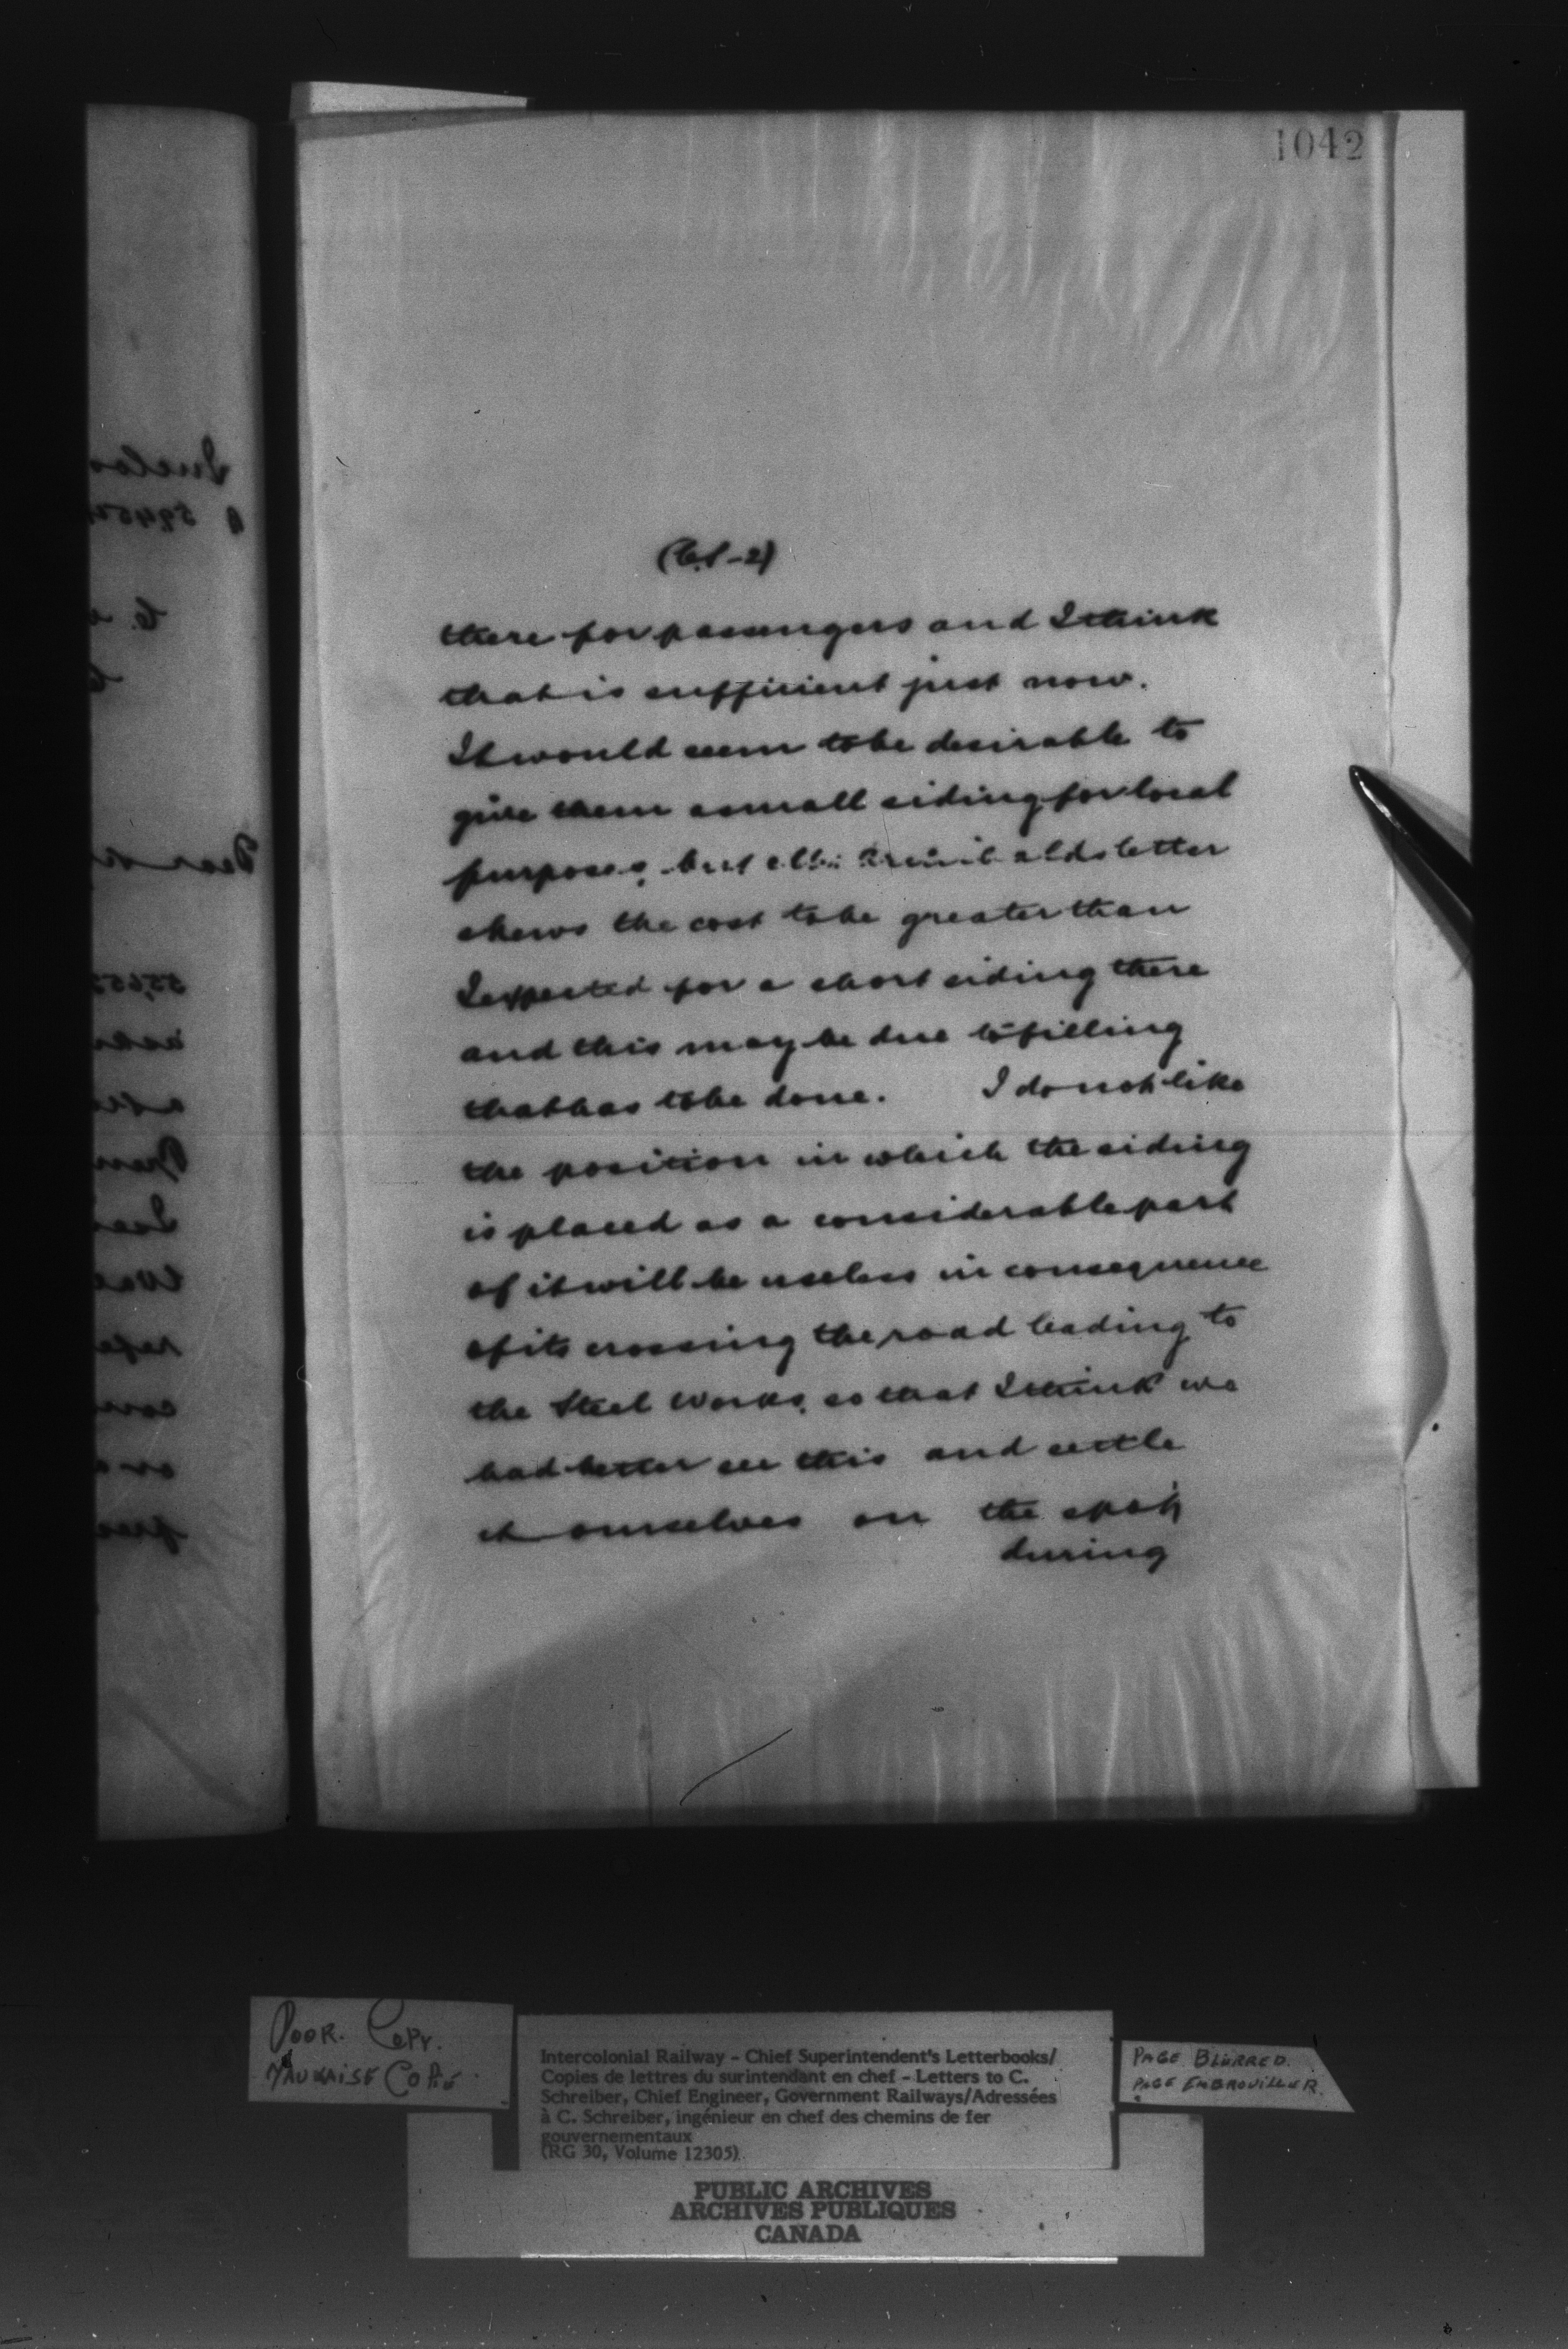 1042
(C.S-2)
there for passengers and I think
that is sufficient just now.
It would seem to be desirable to
give them a small siding for local
purposes, but Mr. Archibalds letter
shews the cost to be greater than
I expected for a short siding there
and this may be due to filling
that has to be done. I do not like
the position in which the siding
is placed as a considerable part
of it will be useless in consequence
of its crossing the road leading to
the Steel Works, so that I think we
had better see this and settle
it ourselves on the spot,
during
POOR. COPY.
MAUVAISE COPIE
Intercolonial Railway - Chief Superintendent's Letterbooks/
Copies de lettres du surintendant en chef - Letters to C.
Schreiber, Chief Engineer, Government Railways/Adressées
à C. Schreiber, ingénieur en chef des chemins de fer
gouvernementaux
(RG 30, Volume 12305).
PAGE BLURRED.
PAGE EMBROUILLER.
PUBLIC ARCHIVES
ARCHIVES PUBLIQUES
CANADA